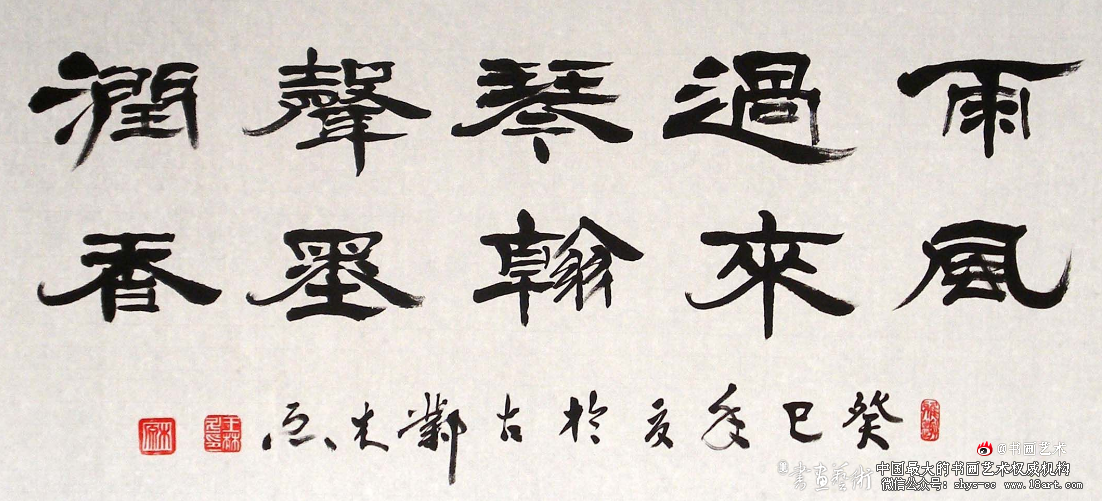 雨過琴聲潤
風來翰墨香
癸巳年夏於古鄴木石
@书画艺术
書畫藝術
中国最大的书画艺术权威机构
微信公众号: shys-cc www.18art.com